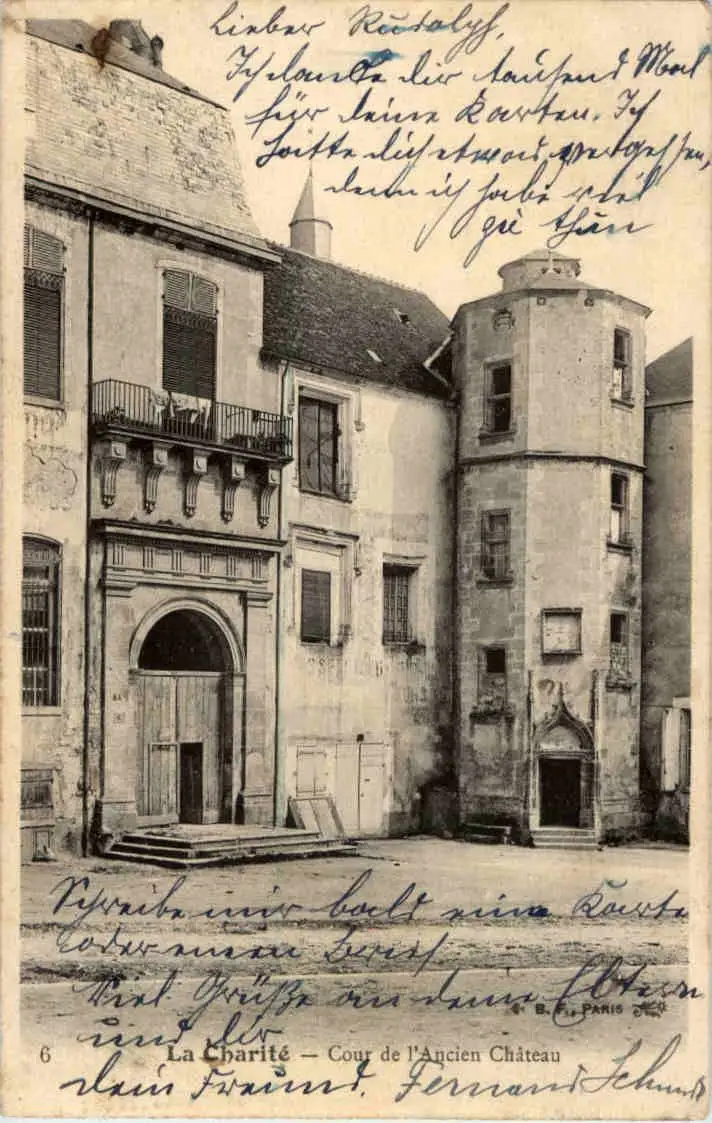 Lieber Rudolph,
Ich danke dir tausend Mal
für deine Karten. Ich
hatte dich etwas vergessen,
denn ich habe viel
zu thun
Schreibe mir bald eine Karte
oder einen Brief
Viel Grüße an deine Eltern
B. F., PARIS
und dir
6 La Charité – Cour de l'Ancien Château
dein Freund. Fernand Schmidt